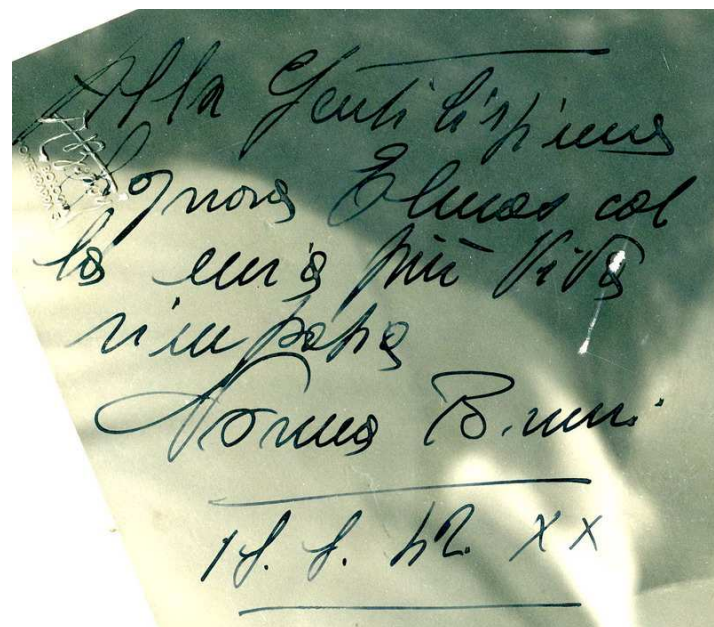 Alla Gentilissima
Signora Elmas col
la mia più viva
simpatia
Norma Bruni
42. XX